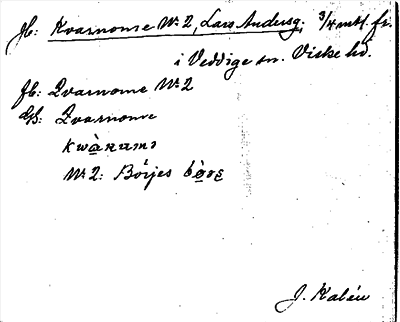 Jb: Kvarnome Nr. 2, Lars Andersg; 3/4 mtl. fr.
i Veddige sn. Viske hd.
Jb: Qvarnome Nr. 2
Gb: Qvarnome
Nr. 2: Börjes
J. Kalén